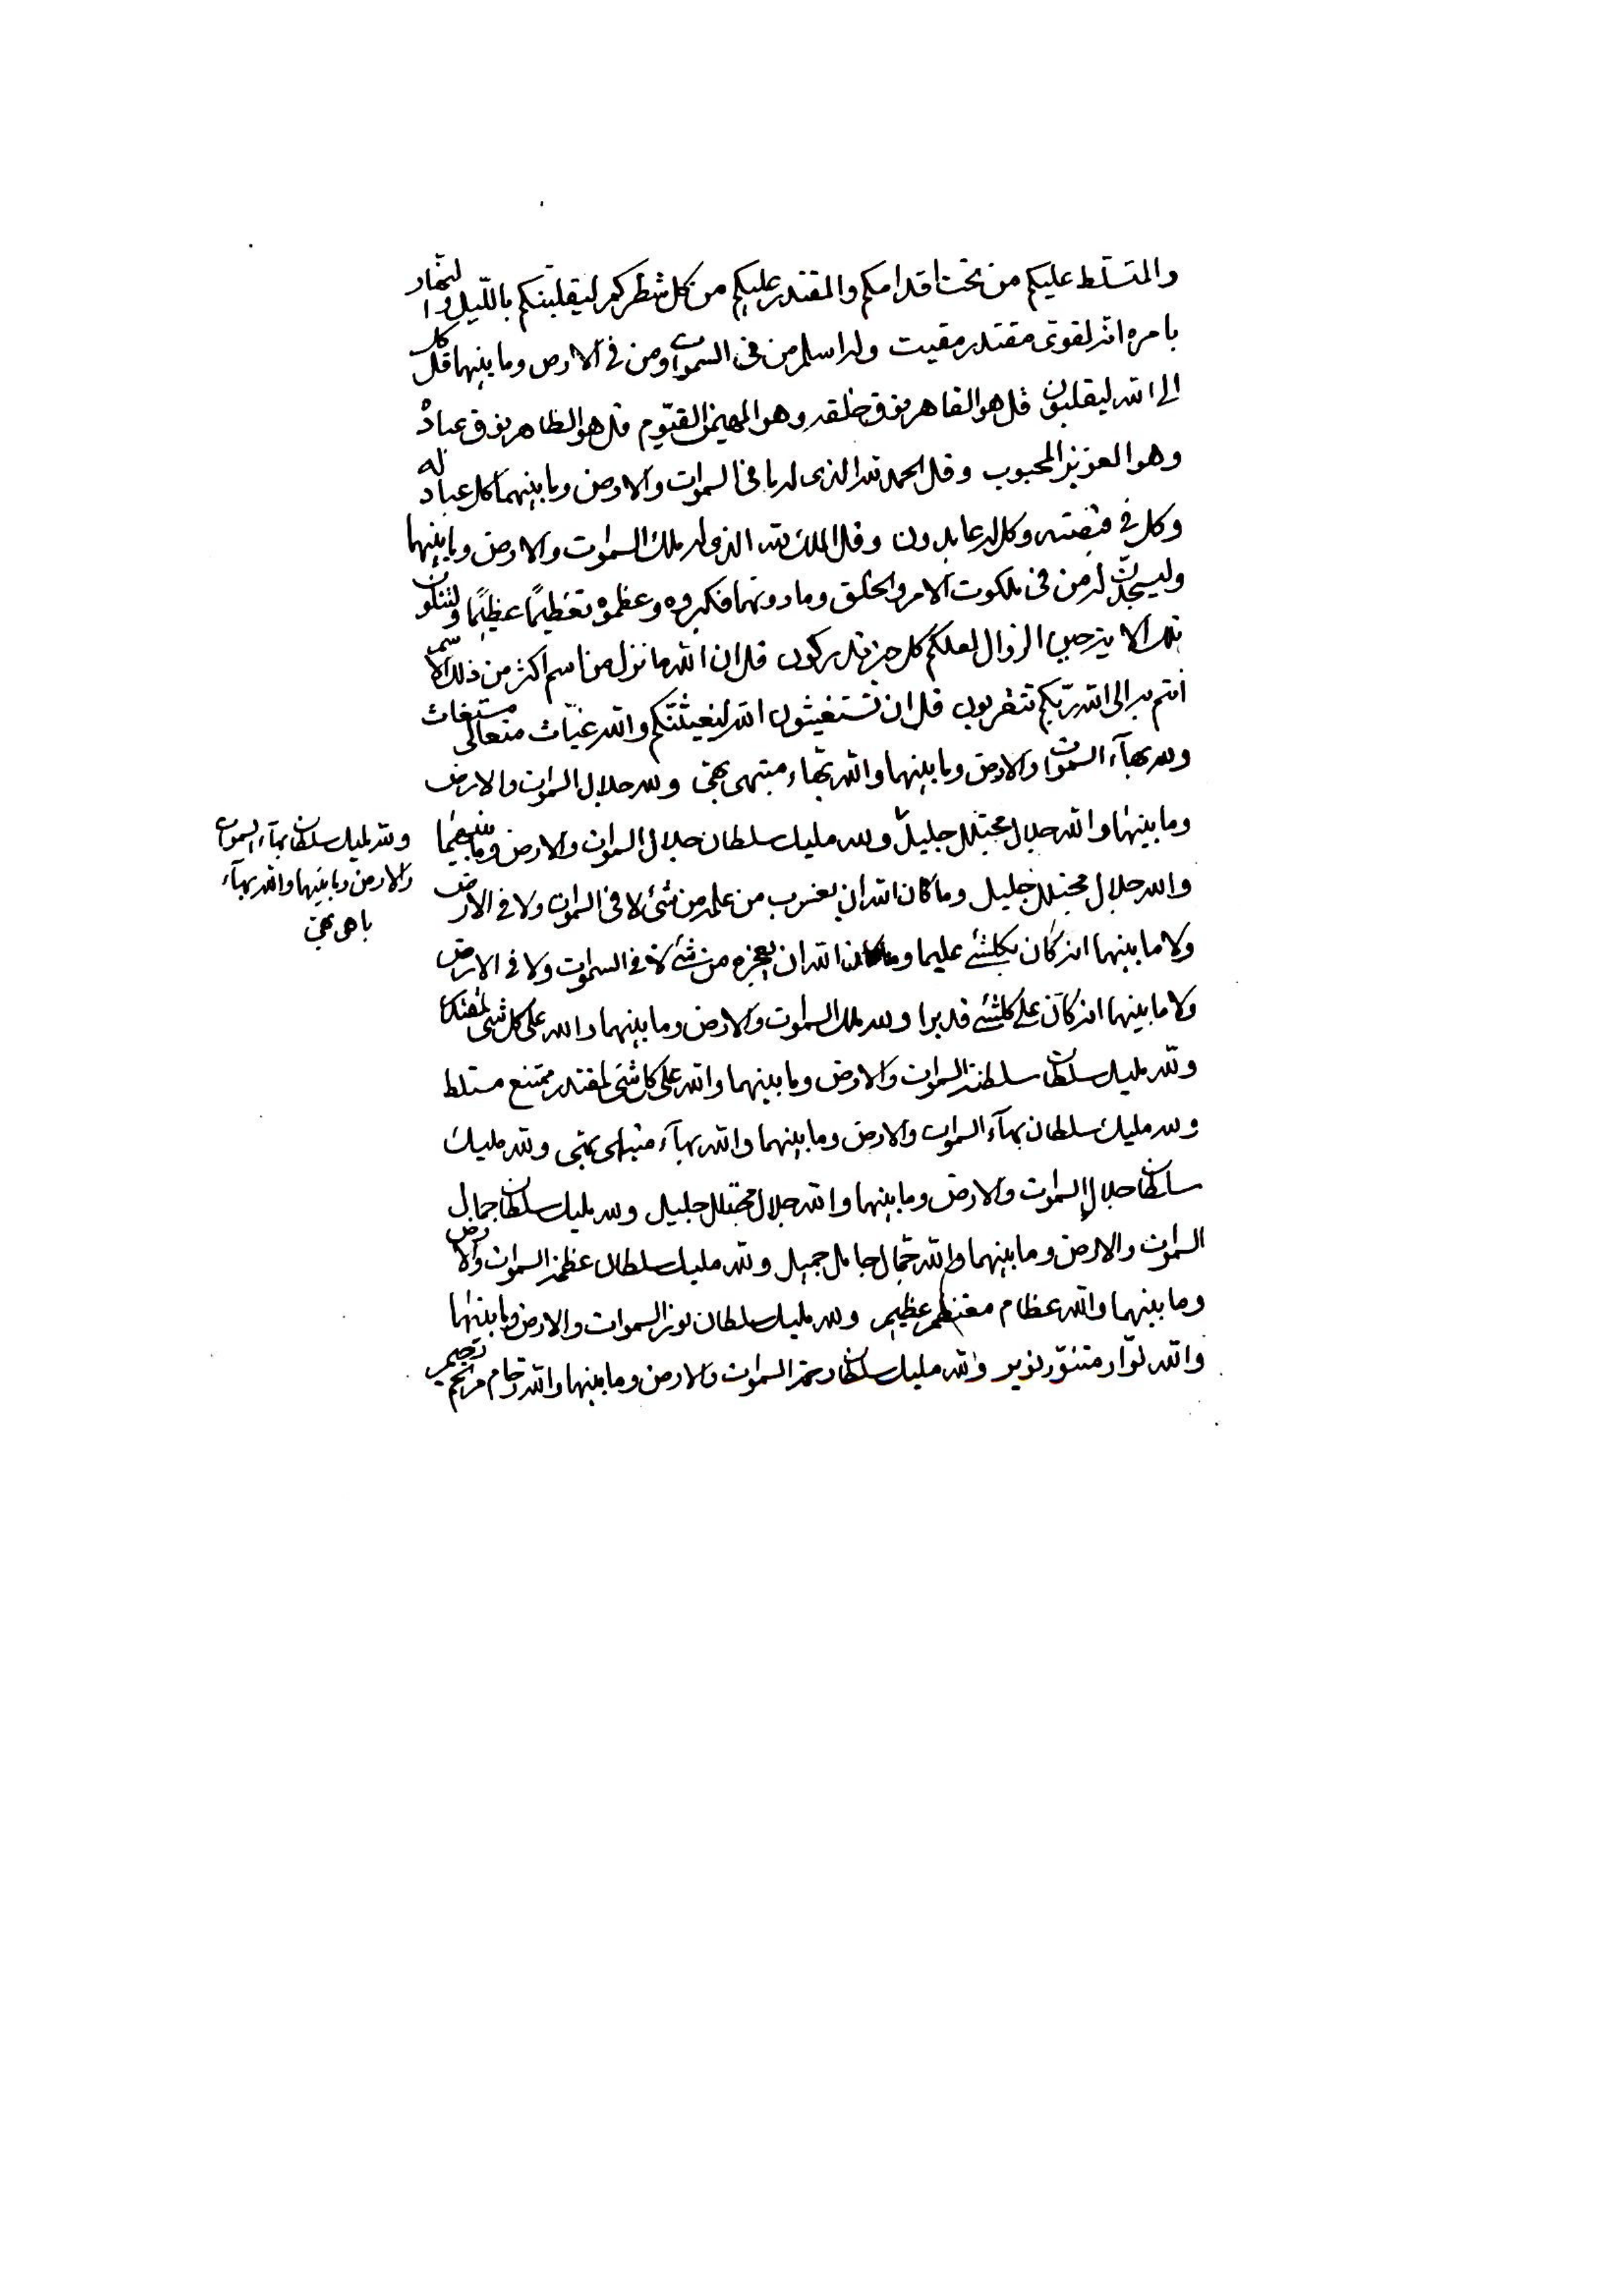 والمتسلط عليكم من تحت اقدامكم والمقتدر عليكم من كل شطركم ليقلبنكم بالليل والنهار
بامره انه لقوى مقتدر مقيت وله اسلم من فى السموات ومن فى الارض وما بينهما قل كل
الى الله ليقلبون قل هو القاهر فوق خلقه وهو المهيمن القيوم قل هو الظاهر فوق عباده
وهو العزيز المحبوب وقل الحمد لله الذى له ما فى السموات والارض وما بينهما كل عباد له
وكل فى قبضته وكل له عابدون وقل الملك لله الذى له ملك السموات والارض وما بينهما
وليسجدن له من فى ملكوت الامر والخلق وما دونهما فكبروه وعظموه تعظيما عظيما ولتتلون
تلك الاية حين الزوال لعلكم كل خير تدركون قل ان الله ما نزل من اسم اكثر من ذلك الاسم
انتم به الى الله ربكم تتقربون قل ان تستغيثون الله ليغيثنكم والله غياث مستغاث متعالى
ولله بهآء السموات والارض وما بينهما والله بهاء مبتهى بهى ولله جلال السموات والارض
وما بينهما والله جلال مجتلل جليل ولله مليك سلطان جلال السموات والارض وما بينهما
والله جلال مجتلل جليل وما كان الله ان يعزب من علمه من شئ لا فى السموات ولا فى الارض
ولا ما بينهما انه كان بكلشئ عليما وما كان الله ان يعجزه من شئ لا فى السموات ولا فى الارض
ولا ما بينهما انه كان على كلشئ قديرا ولله ملك السموات والارض وما بينهما والله على كل شئ لمقتدر
ولله مليك سلطان سلطنة السموات والارض وما بينهما والله على كل شئ لمقتدر ممتنع مستلط
ولله مليك سلطان بهآء السموات والارض وما بينهما والله بهآء متباهى بهى ولله مليك
سلطان جلال السموات والارض وما بينهما والله جلال مجتلل جليل ولله مليك سلطان جمال
السموات والارض وما بينهما والله جمال جامل جميل ولله مليك سلطان عظمة السموات والارض
وما بينهما والله عظام معتظم عظيم ولله مليك سلطان نور السموات والارض وما بينهما
والله نوار متنور نوير ولله مليك سلطان رحمة السموات والارض وما بينهما والله رحام مرتحم رحيم
ولله مليك سلطان بهآء السموات
والارض وما بينهما والله بهآء
باهى بهى